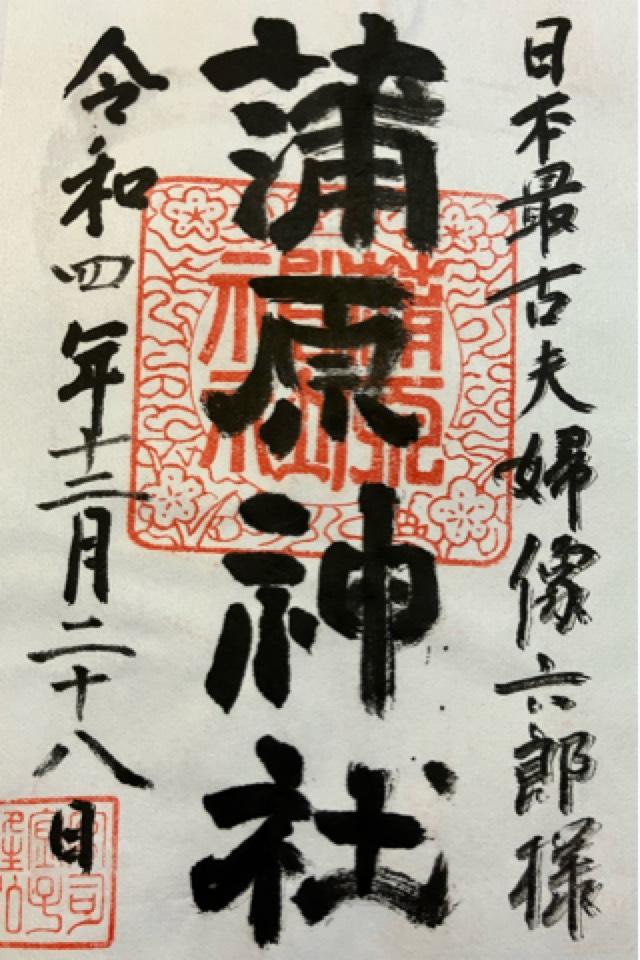 日本最古夫婦像六郎様
蒲原神社
令和四年十二月二十八日
蒲原神社